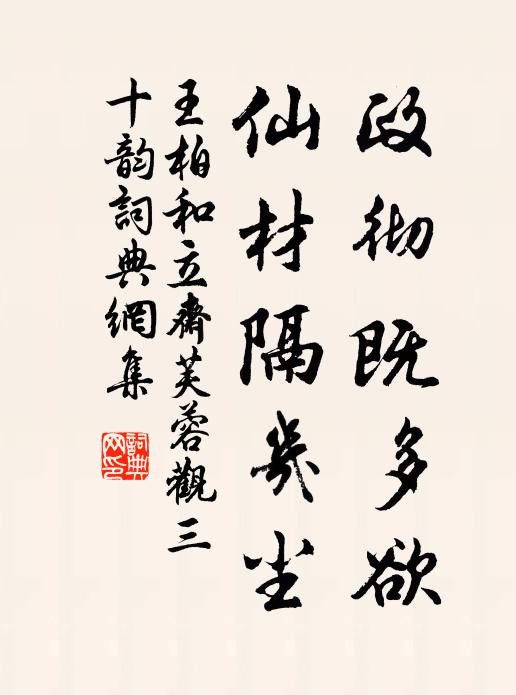 政彻既多欲
仙材隔幾尘
王柏和立齋芙蓉觀三
十韵詞典網集
詞典網印